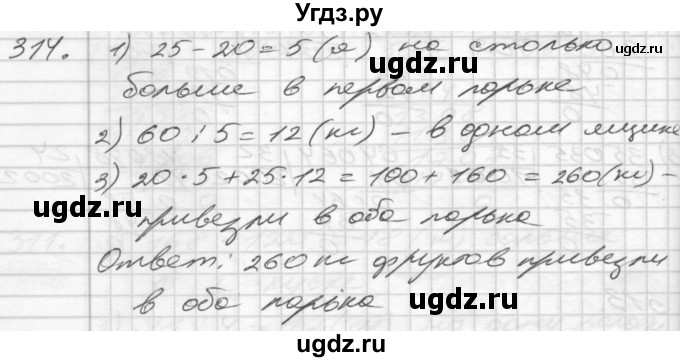 Угдз.ру
314. 1) 25 - 20 = 5 (я) на столько
ugdz.ru ugdz.ru
больше в первом ларьке
ugdz.ru
2) 60 : 5 = 12 (кг) - в одном ящике
3) 20 · 5 + 25 · 12 = 100 + 160 = 260 (кг) -
ugdz.ru ugdz.ru
привезли в оба ларька
ugdz.ru
Ответ: 260 кг фруктов привезли
в оба ларька
ugdz.ru ugdz.ru